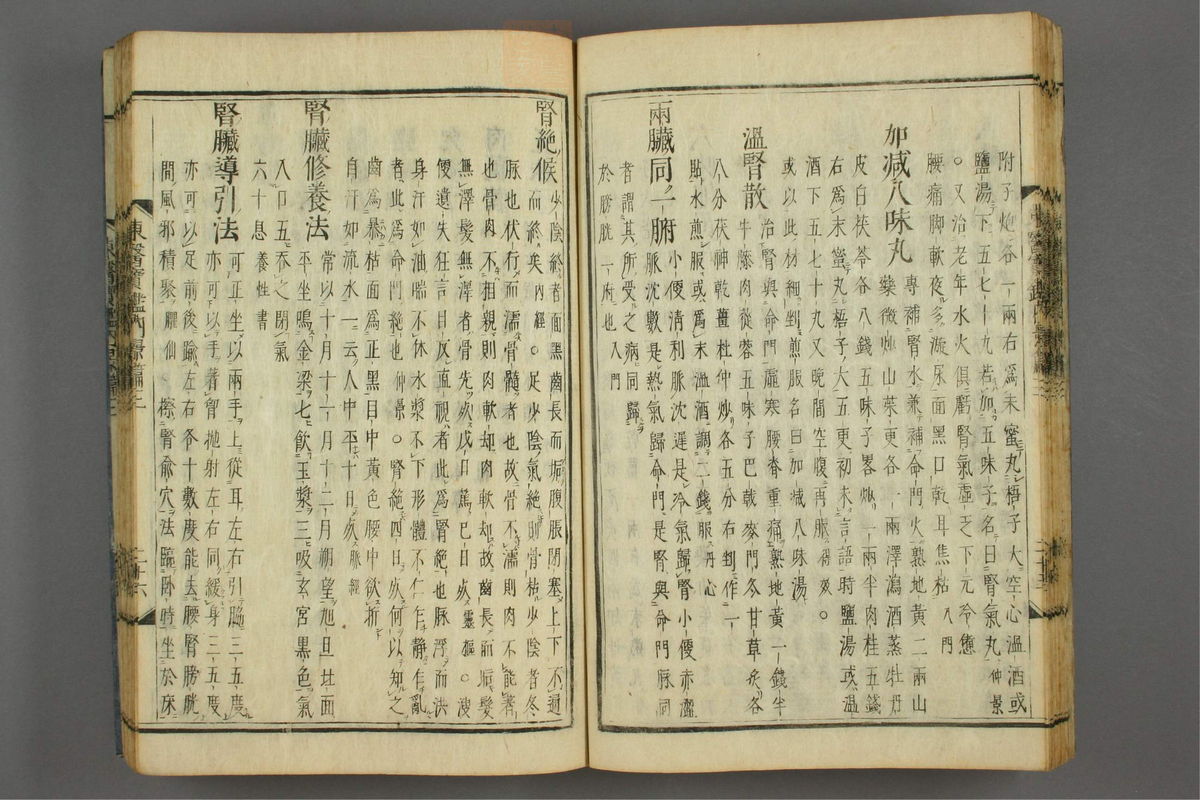 附子炮各一兩右爲末蜜丸梧子大空心温酒或
鹽湯下五七十九若加五味子名曰腎氣丸仲景
○又治老年水火俱虧腎氣虛乏下元冷憊
腰痛脚軟夜多漩尿面黑口乾耳焦枯入門
加減八味丸 專補腎水兼補命門火熟地黃二兩山
藥微炒山茱萸各一兩澤瀉酒蒸牡丹
皮白茯苓各八錢五味子畧炒一兩半肉桂五錢
右爲末蜜丸梧子大五更初未言語時鹽湯或温
酒下五七十丸又晚間空腹再服得效○
或以此材細剉煎服名曰加減八味湯
溫腎散 治腎與命門虛寒腰脊重痛熟地黃一錢半
牛膝肉從蓉五味子巴戟麥門冬甘草灸各
八分茯神乾薑杜仲炒各五分右剉作一
貼水煎服或爲末溫酒調二錢服丹心
兩臟同一腑 小便淸利脈沈遲是冷氣歸腎小便赤澁
脈沈數是熱氣歸命門是腎與命門脈同
者謂其所受之病同歸
於膀胱一府也
腎絶候 少陰終者面黑齒長而垢腹脹閉塞上下不通
而終矣內經○足少陰氣絶則骨枯少陰者冬
脉也伏行而濡骨髓者也故骨不濡則肉不能著
也骨肉不相親則肉軟却肉軟却故齒長而垢髮
無澤髮無澤者骨先死戊日篤己日死靈樞○溲
便遺失狂言目反直視者此爲腎絶也脉浮而洪
身汗如油喘不休水漿不下形體不仁乍靜乍亂
者此爲命門絶也仲景○腎絶四日死何以知之
齒爲暴枯面爲正黑目中黃色腰中欲折
自汗如流水一云人中平十日死脈經
腎臟修養法 常以十月十一月十二月朔望旭旦北面
平坐鳴金梁七飮玉漿三吸玄宮黑色氣
入口五吞之閉氣
六十息養性書
腎臟導引法 可正坐以兩手上從耳左右引脇三五度
亦可以手著胷抛射左右同緩身三五度
亦可以足前後踰左右各十數度能去腰腎膀胱
間風邪積聚臞仙 擦腎兪穴法臨臥時坐於床